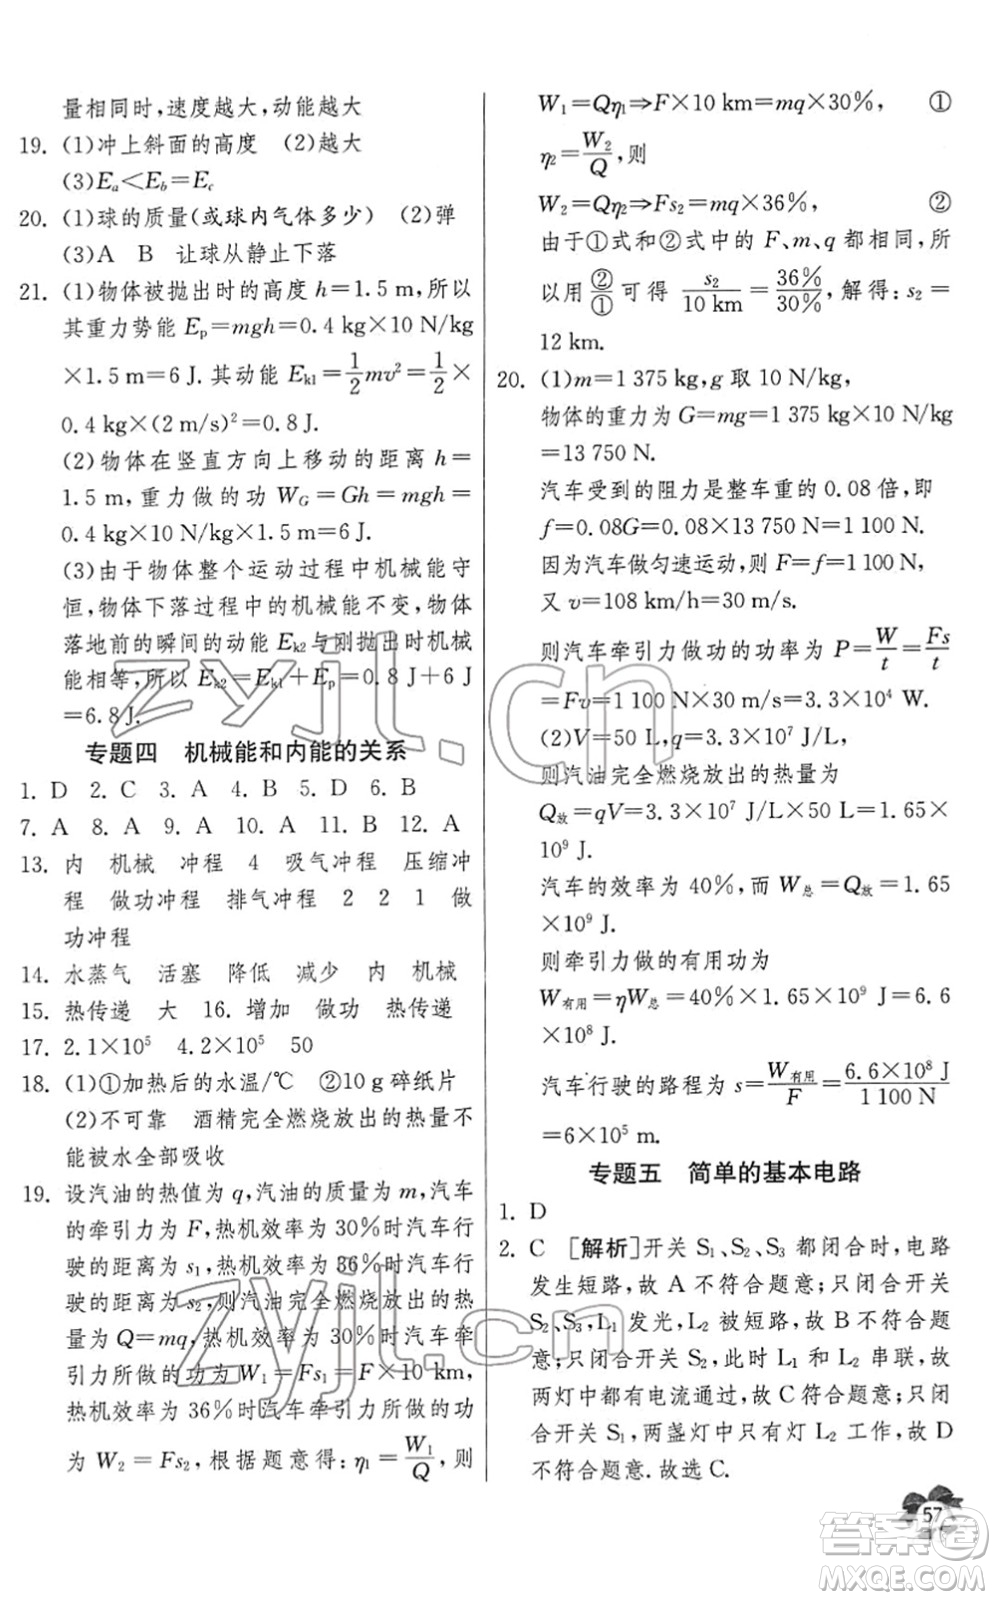 量相同时,速度越大,动能越大
19. (1)冲上斜面的高度 (2)越大
(3)Eₐ<E_b=E_c
20. (1)球的质量(或球内气体多少) (2)弹
(3)A B 让球从静止下落
21. (1)物体被抛出时的高度 h=1.5 m,所以
其重力势能 Eₚ=mgh=0.4 kg×10 N/kg
×1.5 m=6 J.其动能 Eₖ₁=1/2 mv²=1/2×
0.4 kg×(2 m/s)²=0.8 J.
(2)物体在竖直方向上移动的距离 h=
1.5 m,重力做的功 W_G=Gh=mgh=
0.4 kg×10 N/kg×1.5 m=6 J.
(3)由于物体整个运动过程中机械能守
恒,物体下落过程中的机械能不变,物体
落地前的瞬间的动能 Eₖ₂与刚抛出时机械
能相等,所以 Eₖ₂=Eₖ₁+Eₚ=0.8 J+6 J
=6.8 J.
专题四 机械能和内能的关系
1. D 2. C 3. A 4. B 5. D 6. B
7. A 8. A 9. A 10. A 11. B 12. A
13. 内 机械 冲程 4 吸气冲程 压缩冲
程 做功冲程 排气冲程 2 2 1 做
功冲程
14. 水蒸气 活塞 降低 减少 内 机械
15. 热传递 大 16. 增加 做功 热传递
17. 2.1×10⁵ 4.2×10⁵ 50
18. (1)①加热后的水温/℃ ②10 g 碎纸片
(2)不可靠 酒精完全燃烧放出的热量不
能被水全部吸收
19. 设汽油的热值为 q,汽油的质量为 m,汽车
的牵引力为 F,热机效率为 30%时汽车行
驶的距离为 s₁,热机效率为 36%时汽车行
驶的距离为 s₂,则汽油完全燃烧放出的热
量为 Q=mq,热机效率为 30%时汽车牵
引力所做的功为 W₁=Fs₁=F×10 km,
热机效率为 36%时汽车牵引力所做的功
为 W₂=Fs₂,根据题意得:η₁=W₁/Q,则
W₁=Qη₁⇒F×10 km=mq×30%, ①
η₂=W₂/Q,则
W₂=Qη₂⇒Fs₂=mq×36%, ②
由于①式和②式中的 F、m、q 都相同,所
以用②/①可得 s₂/10 km=36%/30%,解得:s₂=
12 km.
20. (1)m=1 375 kg,g 取 10 N/kg,
物体的重力为 G=mg=1 375 kg×10 N/kg
=13 750 N.
汽车受到的阻力是整车重的 0.08 倍,即
f=0.08G=0.08×13 750 N=1 100 N.
因为汽车做匀速运动,则 F=f=1 100 N.
又 v=108 km/h=30 m/s.
则汽车牵引力做功的功率为 P=W/t=Fs/t
=Fv=1 100 N×30 m/s=3.3×10⁴ W.
(2)V=50 L,q=3.3×10⁷ J/L,
则汽油完全燃烧放出的热量为
Q放=qV=3.3×10⁷ J/L×50 L=1.65×
10⁹ J.
汽车的效率为 40%,而 W总=Q放=1.65
×10⁹ J.
则牵引力做的有用功为
W有用=ηW总=40%×1.65×10⁹ J=6.6
×10⁸ J.
汽车行驶的路程为 s=W有用/F=6.6×10⁸ J/1 100 N
=6×10⁵ m.
专题五 简单的基本电路
1. D
2. C [解析]开关 S₁、S₂、S₃ 都闭合时,电路
发生短路,故 A 不符合题意;只闭合开关
S₂、S₃,L₁ 发光,L₂ 被短路,故 B 不符合题
意;只闭合开关 S₂,此时 L₁ 和 L₂ 串联,故
两灯中都有电流通过,故 C 符合题意;只闭
合开关 S₁,两盏灯中只有灯 L₂ 工作,故 D
不符合题意.故选 C.
57
zyjl.cn
zyjl.cn
答案圈
MXQE.COM